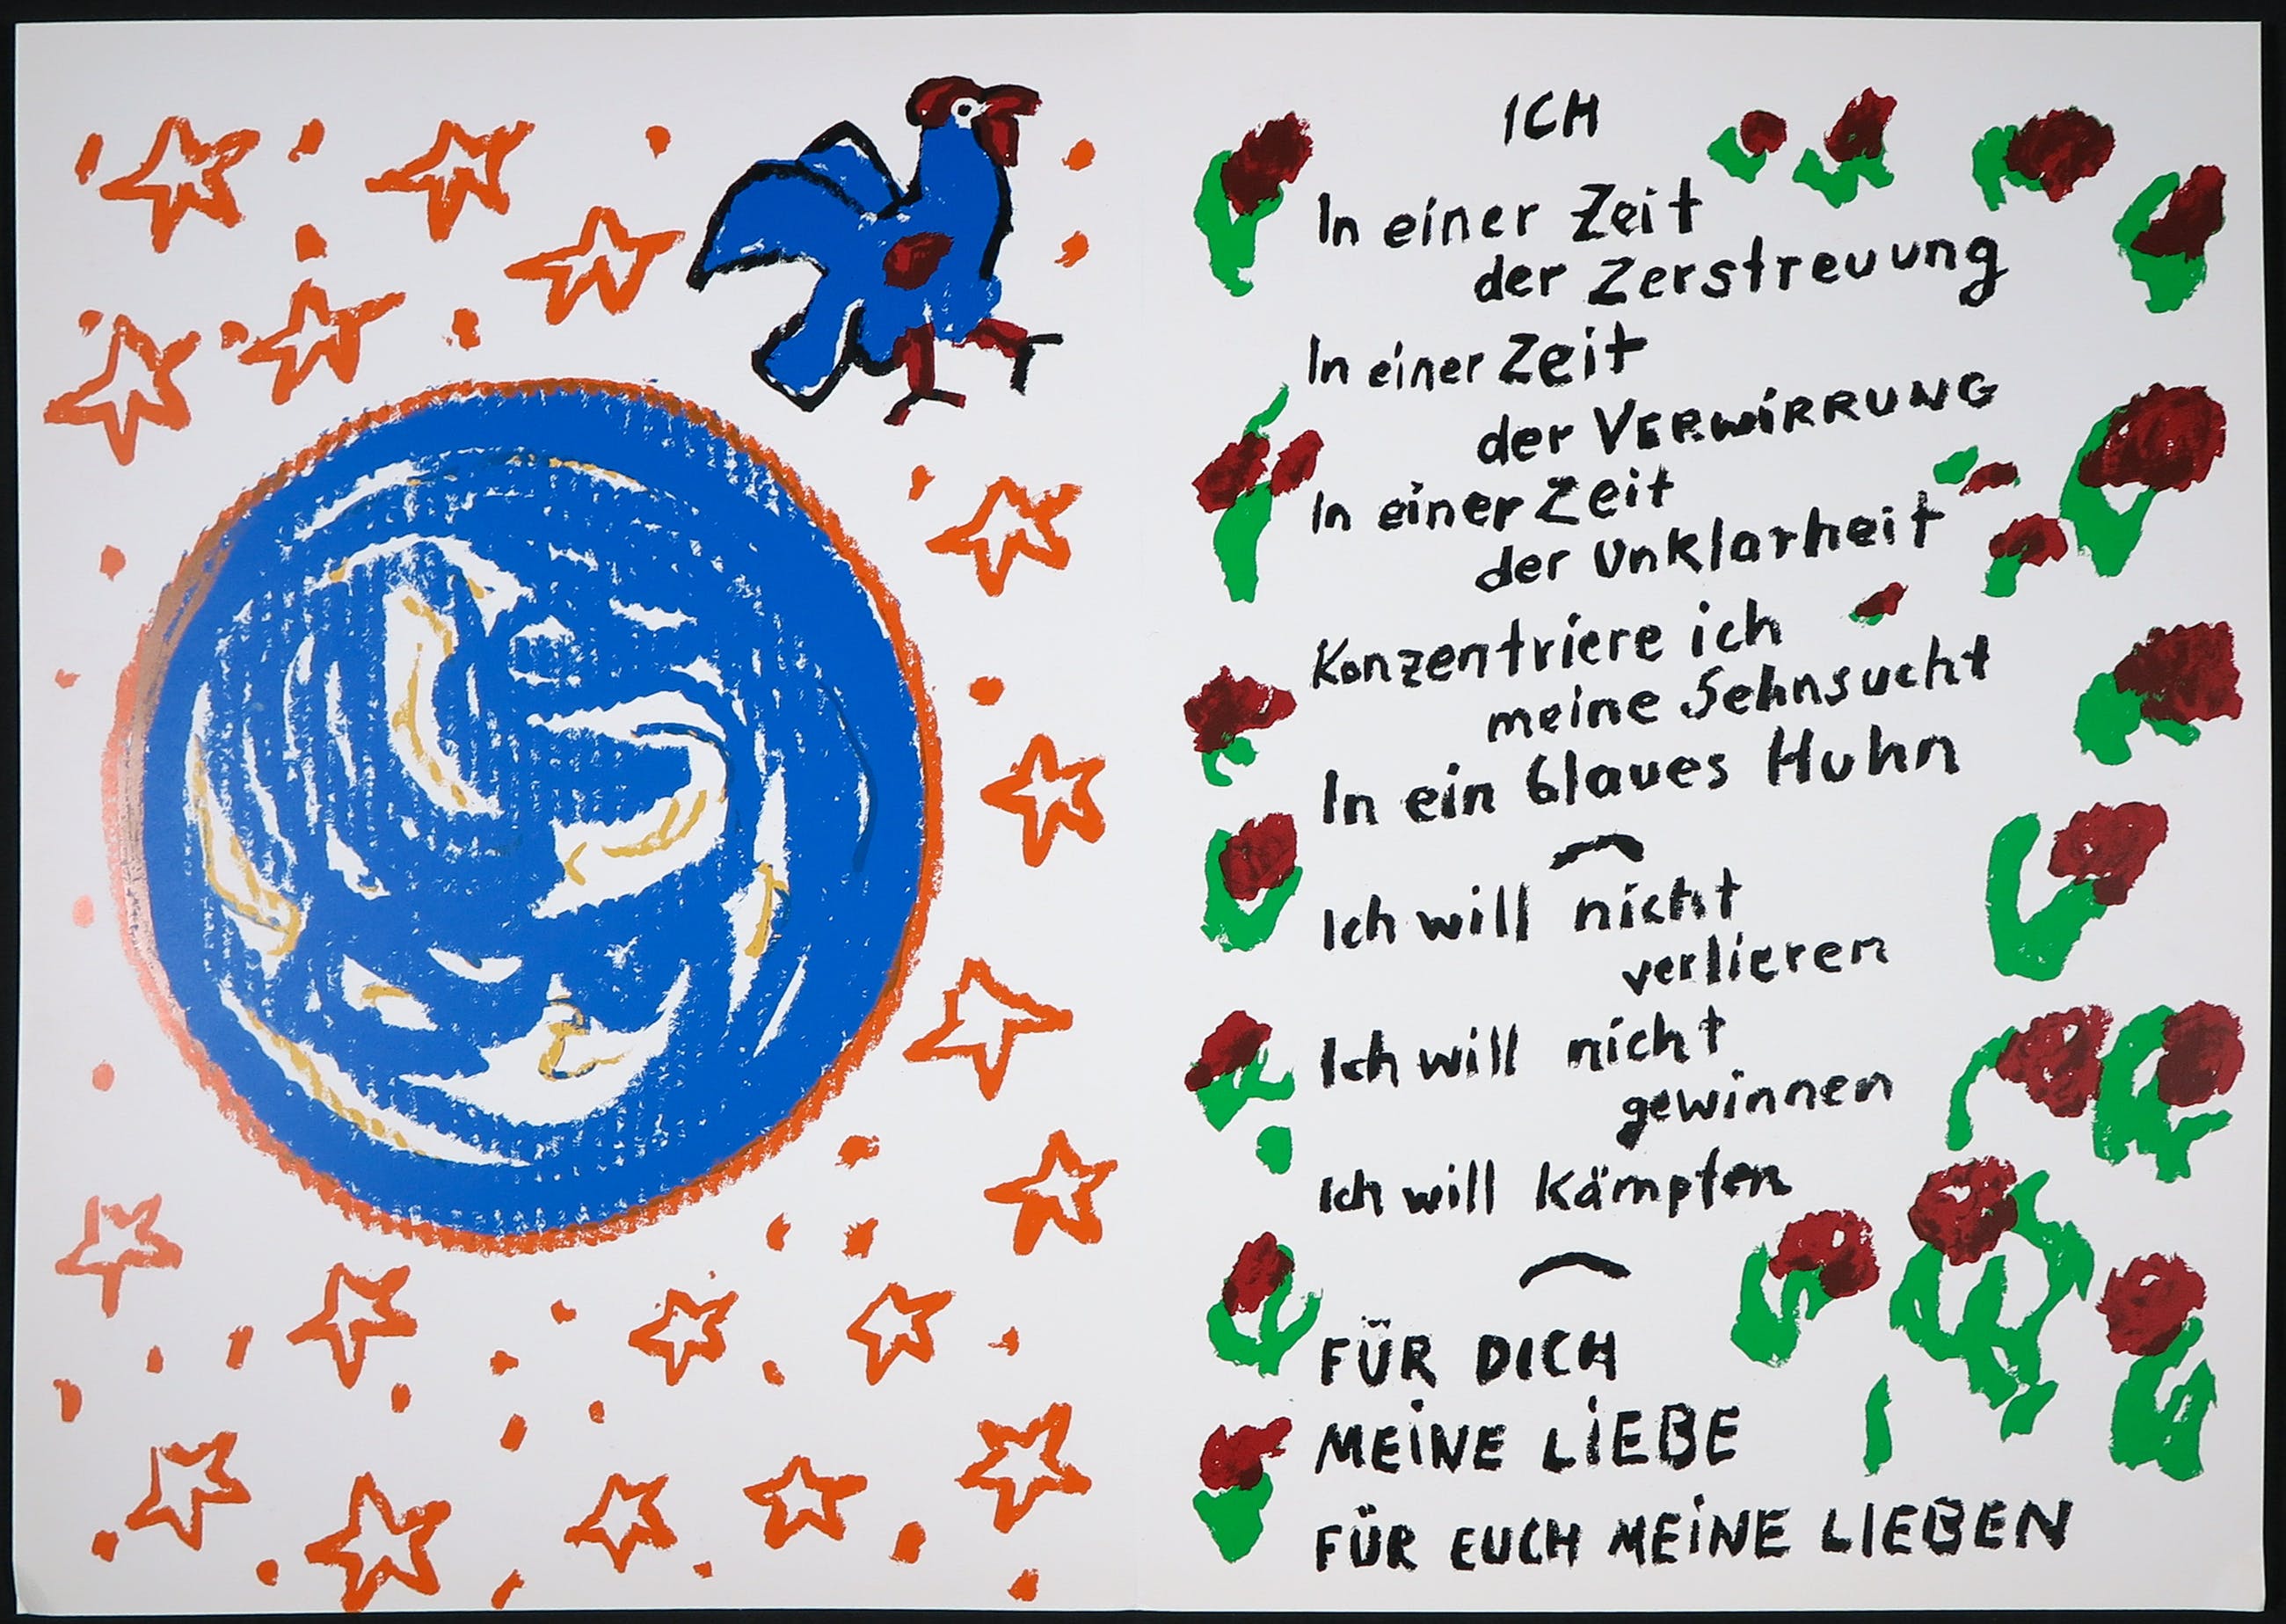 ICH
In einer Zeit
der Zerstreuung
In einer Zeit
der VERWiRRUNG
In einer Zeit
der Unklarheit
Konzentriere ich
meine Sehnsucht
In ein blaues Huhn
Ich will nicht
verlieren
Ich will nicht
gewinnen
Ich will kämpfen
FÜR DICH
MEiNE LiEBE
FÜR EUCH MEiNE LIEBEN